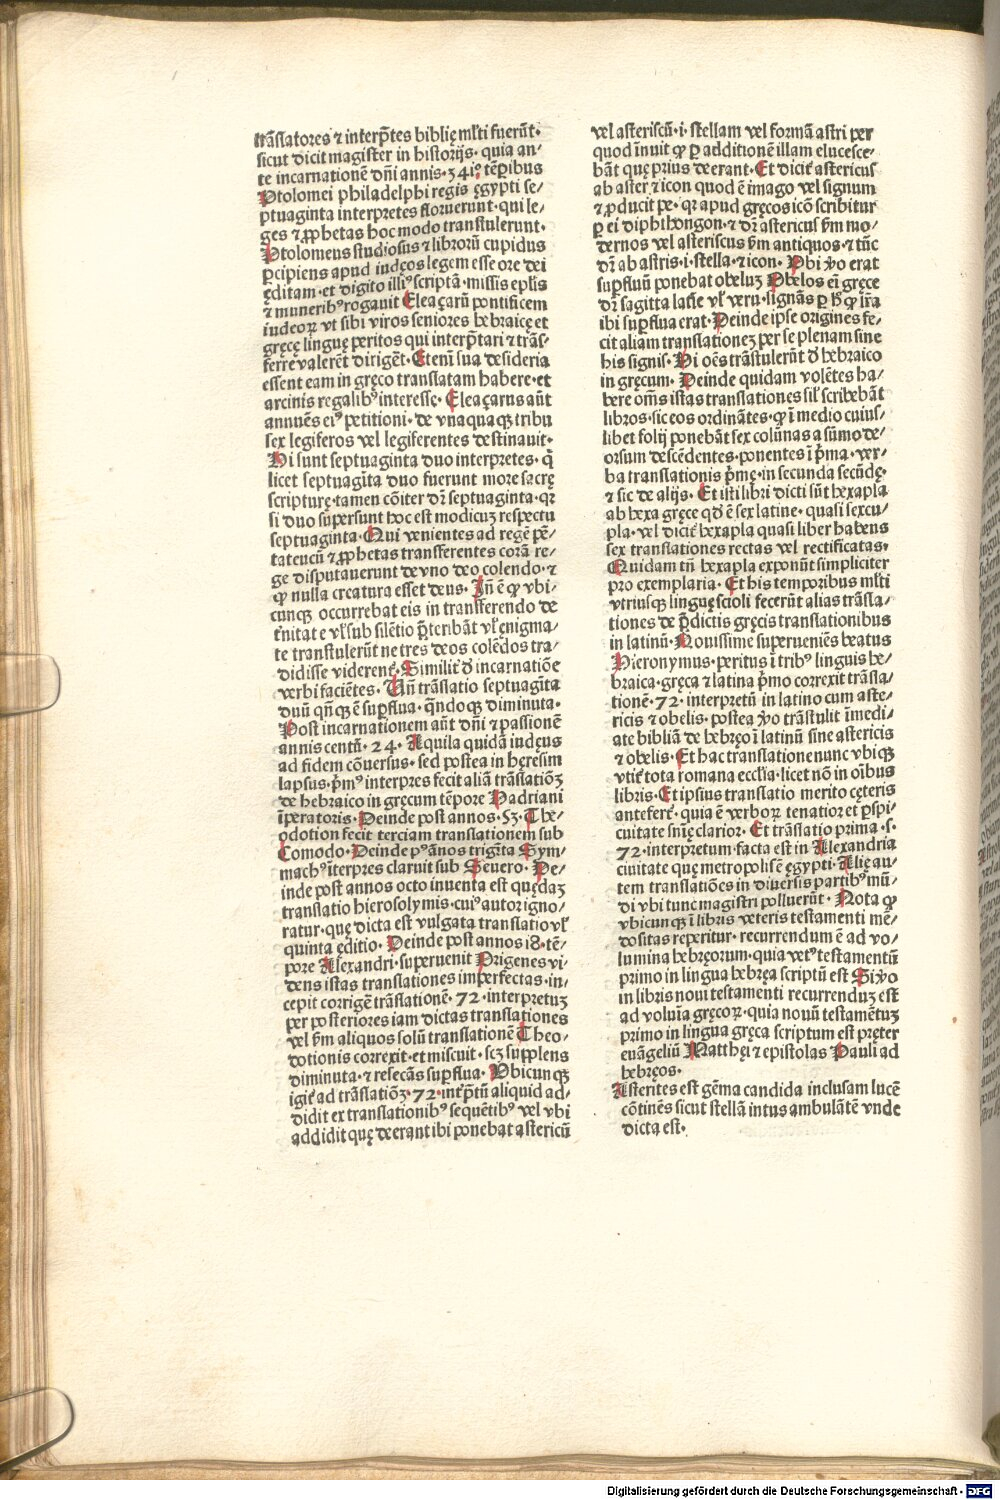 trãslatores ⁊ interp̃tes biblię ml̃ti fuerũt·
sicut dicit magister in historijs· quia an/
te incarnationẽ dñi annis·341· tẽꝑibus
Ptolomei philadelphi regis ęgypti se/
ptuaginta interpretes floruerunt· qui le/
ges ⁊ ꝓphetas hoc modo transtulerunt·
Ptolomeus studiosus ⁊ librorũ cupidus
ꝑcipiens apud iudęos legem esse ore dei
ęditam· et digito illiꝰ scriptã· missis epl̃is
⁊ muneribꝰ rogauit Eleaçarũ pontificem
iudeoꝝ vt sibi viros seniores hebraicę et
gręcę linguę peritos qui interp̃tari ⁊ trãs/
ferre valerẽt dirigẽt· Etenĩ sua desideria
essent eam in gręco translatam habere· et
arcinis regalibꝰ interesse· Eleaçarus aũt
annuẽs eiꝰ petitioni· de vnaquaqꝫ tribu
sex legiferos vel legiferentes destinauit·
Hi sunt septuaginta duo interpretes· q̃
licet septuagĩta duo fuerunt more sacrę
scripturę· tamen cõiter dr̃ septuaginta· qꝛ
si duo supersunt hoc est modicuꝫ respectu
septuaginta· Qui venientes ad regẽ pẽ/
tateucũ ⁊ ꝓphetas transferentes corã re/
ge disputauerunt de vno deo colendo· ⁊
ꝙ nulla creatura esset deus· Iñ ẽ ꝙ vbi/
cunqꝫ occurrebat eis in transferendo de
t̃nitate vl̃ sub silẽtio p̃teribãt vl̃ ęnigma/
te transtulerũt ne tres deos colẽdos tra/
didisse viderent̃· Similit̃ ð incarnatiõe
verbi faciẽtes· Vñ trãslatio septuagĩta
duũ qñqꝫ ẽ suꝑflua· q̃ndoqꝫ diminuta·
Post incarnationem aũt dñi ⁊ passionẽ
annis centũ· 24· Aquila quidã iudęus
ad fidem cõuersus· sed postea in hęresim
lapsus· p̃mꝰ interpres fecit aliã trãslatiõꝫ
de hebraico in gręcum tẽpore Hadriani
ĩperatoris· Deinde post annos·53· The/
odotion fecit terciam translationem sub
Comodo· Deinde pꝰ ãnos trigĩta Sym/
machꝰ ĩterpres claruit sub Seuero· De/
inde post annos octo inuenta est quędaꝫ
translatio hierosolymis· cuiꝰ autor igno/
ratur· quę dicta est vulgata translatio vl̃
quinta ęditio· Deinde post annos 18· tẽ/
pore Alexandri· superuenit Origenes vi/
dens istas translationes imperfectas· in/
cepit corrigẽ trãslationẽ· 72· interpretuꝫ
per posteriores iam dictas translationes
vel ẜm aliquos solũ translationẽ Theo/
dotionis correxit· et miscuit· scꝫ supplens
diminuta· ⁊ resecãs suꝑflua· Vbicunqꝫ
igit̃ ad trãslatiõꝫ·72· int̃p̃tũ aliquid ad/
didit ex translationibꝰ sequẽtibꝰ vel vbi
addidit quę deerant ibi ponebat astericũ
vel asteriscũ· i· stellam vel formã astri per
quod ĩnuit ꝙ ꝑ additionẽ illam elucesce/
bãt quę prius deerant· Et dicit̃ astericus
ab aster ⁊ icon quod ẽ imago vel signum
⁊ ꝓducit pe· qꝛ apud gręcos icõ scribitur
ꝑ ei diphthongon· ⁊ dr̃ astericus ẜm mo/
dernos vel asteriscus ẜm antiquos· ⁊ tũc
dr̃ ab astris· i· stella· ⁊ icon· Vbi ꝟo erat
suꝑfluũ ponebat obeluꝫ Obelos eĩ gręce
dr̃ sagitta latĩe vl̃ veru· signãs ꝑ hͦ ꝙ lr̃a
ibi suꝑflua erat· Deinde ipse origines fe/
cit aliam translationeꝫ per se plenam sine
his signis· Hi oẽs trãstulerũt ð hebraico
in gręcum· Deinde quidam volẽtes ha/
bere om̃s istas translationes sil̃ scribebãt
libros· sic eos ordinãtes· ꝙ ĩ medio cuius/
libet folij ponebãt sex colũnas a sũmo de/
orsum descẽdentes· ponentes ĩ p̃ma· ver/
ba translationis p̃mę· in secunda secũdę·
⁊ sic de alijs· Et isti libri dicti sũt hexapla
ab hexa gręce qð ẽ sex latine· quasi sexcu/
pla· vel dicit̃ hexapla quasi liber habens
sex translationes rectas vel rectificatas·
Quidam tñ hexapla exponũt simpliciter
pro exemplaria· Et his temporibus ml̃ti
vtriusqꝫ linguę scioli fecerũt alias trãsla/
tiones de p̃dictis gręcis translationibus
in latinũ· Nouissime superueniẽs beatus
Hieronymus· peritus ĩ tribꝰ linguis he/
braica· gręca ⁊ latina p̃mo correxit trãsla/
tionẽ·72· interpretũ in latino cum aste/
ricis ⁊ obelis· postea ꝟo trãstulit ĩmedi/
ate bibliã de hebręo ĩ latinũ sine astericis
⁊ obelis· Et hac translatione nunc vbiqꝫ
vtit̃ tota romana eccl̃ia· licet nõ in oĩbus
libris· Et ipsius translatio merito cęteris
antefert̃· quia ẽ verboꝝ tenatior et ꝑspi/
cuitate sñię clarior· Et trãslatio prima· s·
72· interpretum· facta est in Alexandria
ciuitate quę metropolis ẽ ęgypti· Alię au/
tem translatiões in diuersis partibꝰ mũ/
di vbi tunc magistri polluerũt· Nota ꝙ
vbicunqꝫ ĩ libris veteris testamenti mẽ/
dositas reperitur· recurrendum ẽ ad vo/
lumina hebręorum· quia vetꝰ testamentũ
primo in lingua hebręa scriptũ est Si ꝟo
in libris noui testamenti recurrenduꝫ est
ad voluĩa gręcoꝝ· quia nouũ testamẽtuꝫ
primo in lingua gręca scriptum est pręter
euãgeliũ Matthęi ⁊ epistolas Pauli ad
hebręos·
Asterites est gẽma candida inclusam lucẽ
cõtinẽs sicut stellã intus ambulãtẽ vnde
dicta est·
Digitalisierung gefördert durch die Deutsche Forschungsgemeinschaft - DFG